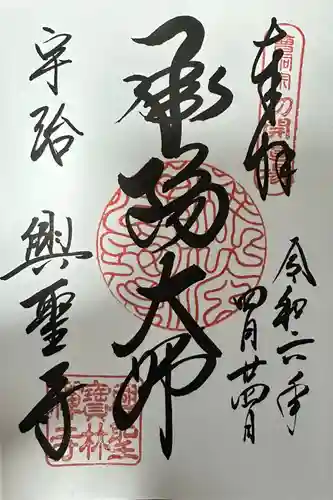 奉拝
曹洞宗初開道場
令和六年
四月廿四日
承陽大師
宇治
興聖寺
興聖
寶林
禅寺